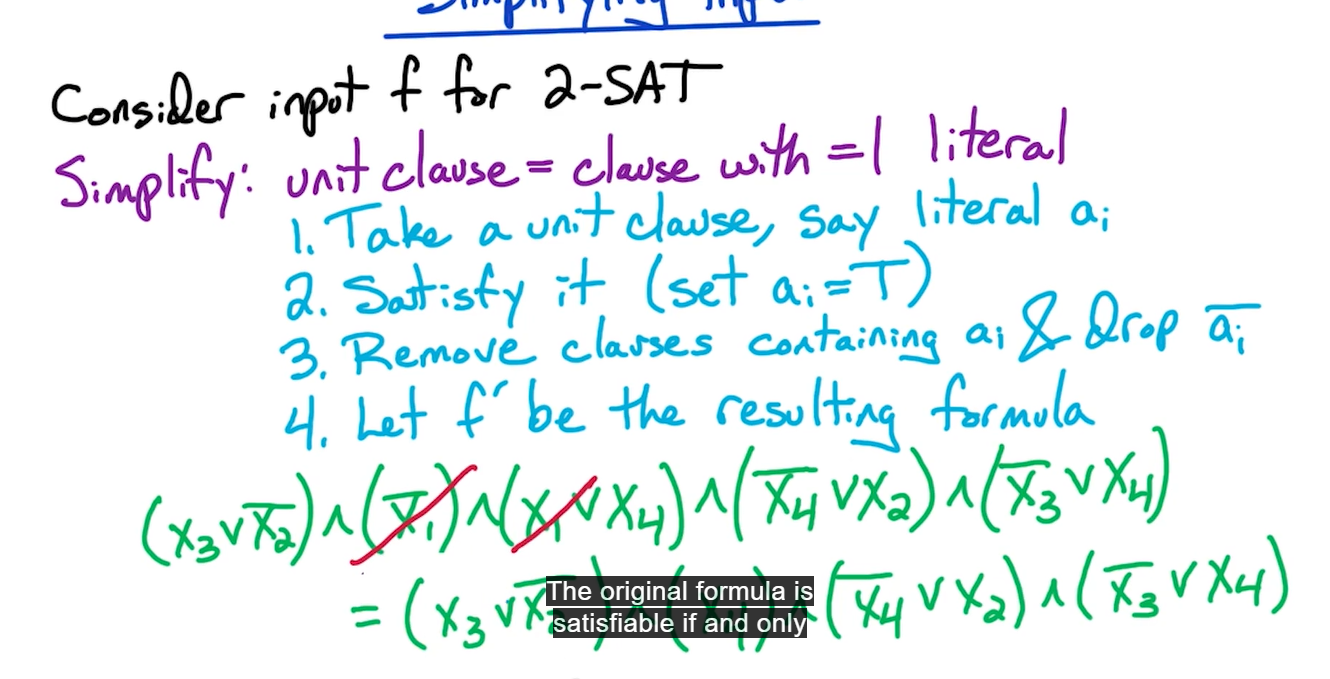 Simplifying
Consider input f for 2-SAT
Simplify: unit clause = clause with =1 literal
1. Take a unit clause, say literal aᵢ
2. Satisfy it (set aᵢ=T)
3. Remove clauses containing aᵢ & drop a̅ᵢ
4. Let f′ be the resulting formula
(x₃ ∨ x̅₂) ∧ (x̅₁) ∧ (x₁ ∨ x₄) ∧ (x̅₄ ∨ x₂) ∧ (x̅₃ ∨ x₄)
= (x₃ ∨ x̅₂) ∧ (x₄) ∧ (x̅₄ ∨ x₂) ∧ (x̅₃ ∨ x₄)
The original formula is
satisfiable if and only